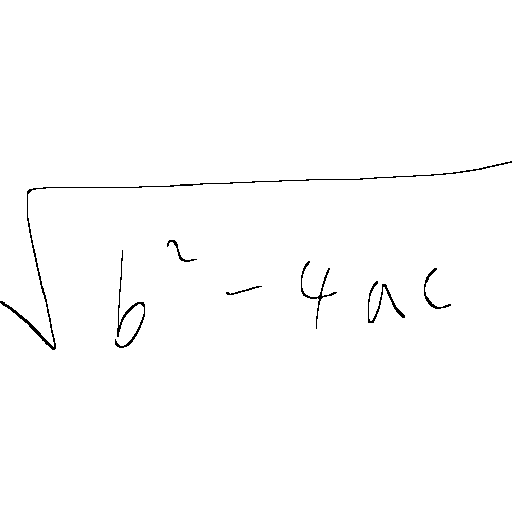 √b² - 4ac